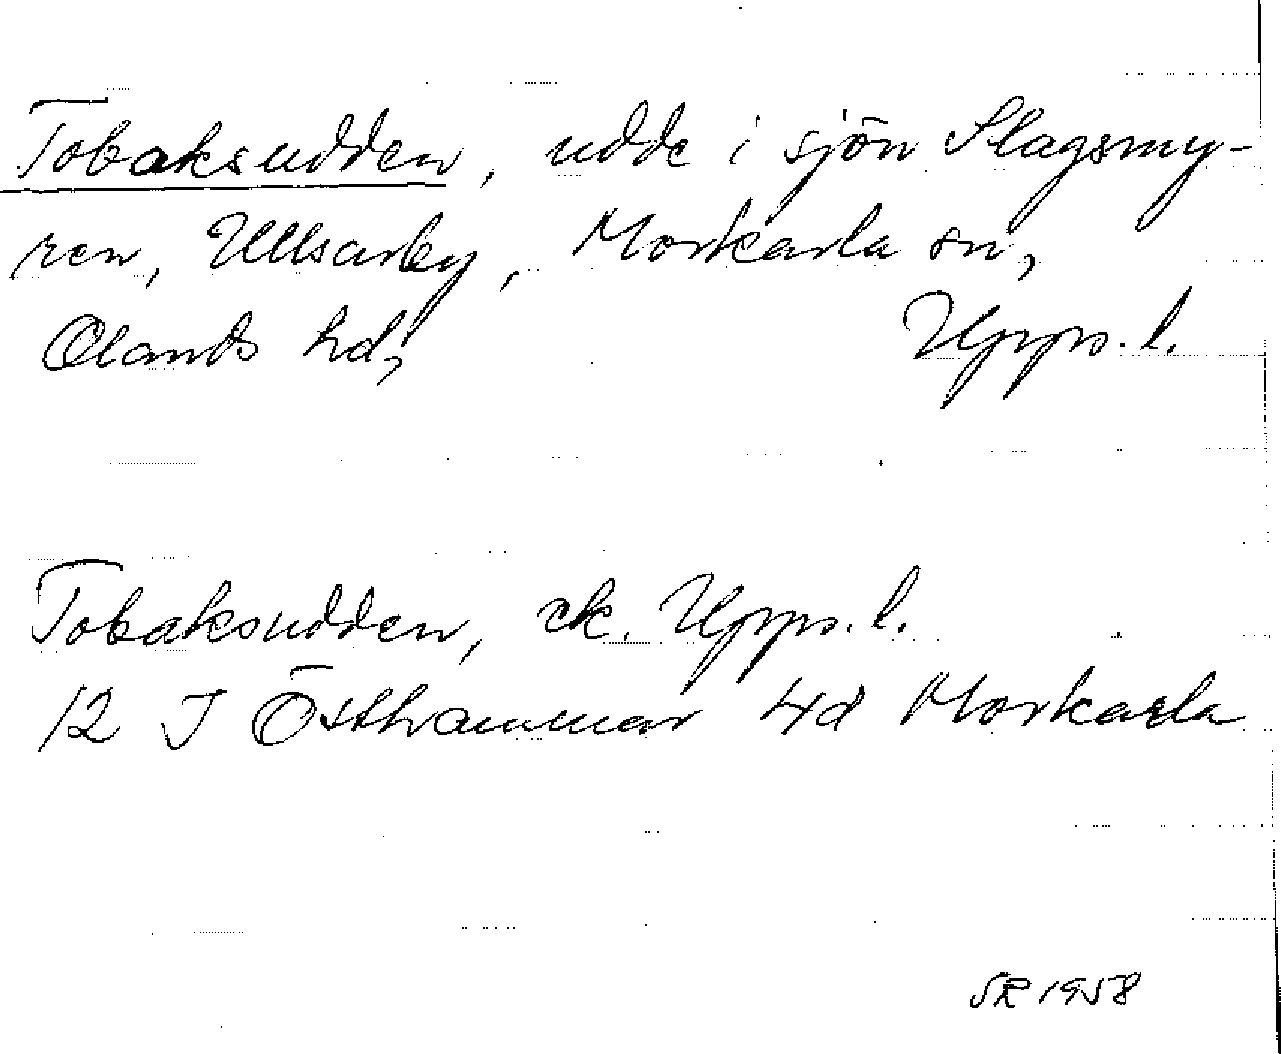 Tobaksudden, udde i sjön Slagsmy-
ren, Ullsarby, Morkarla sn,
Olands hd,
Upps. l.
Tobaksudden, ek. Upps. l.
12 I Östhammar 4d Morkarla
SR 1958